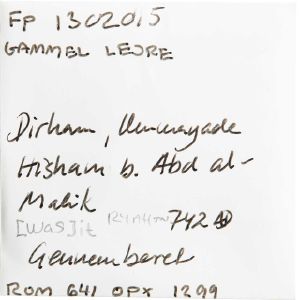 FP 1302015
GAMMEL LEJRE
Dirham, Ummayade
Hisham b. Abd al-
Malik
[Was]it 742 AD
Gennemboret
ROM 641 OPX 1299